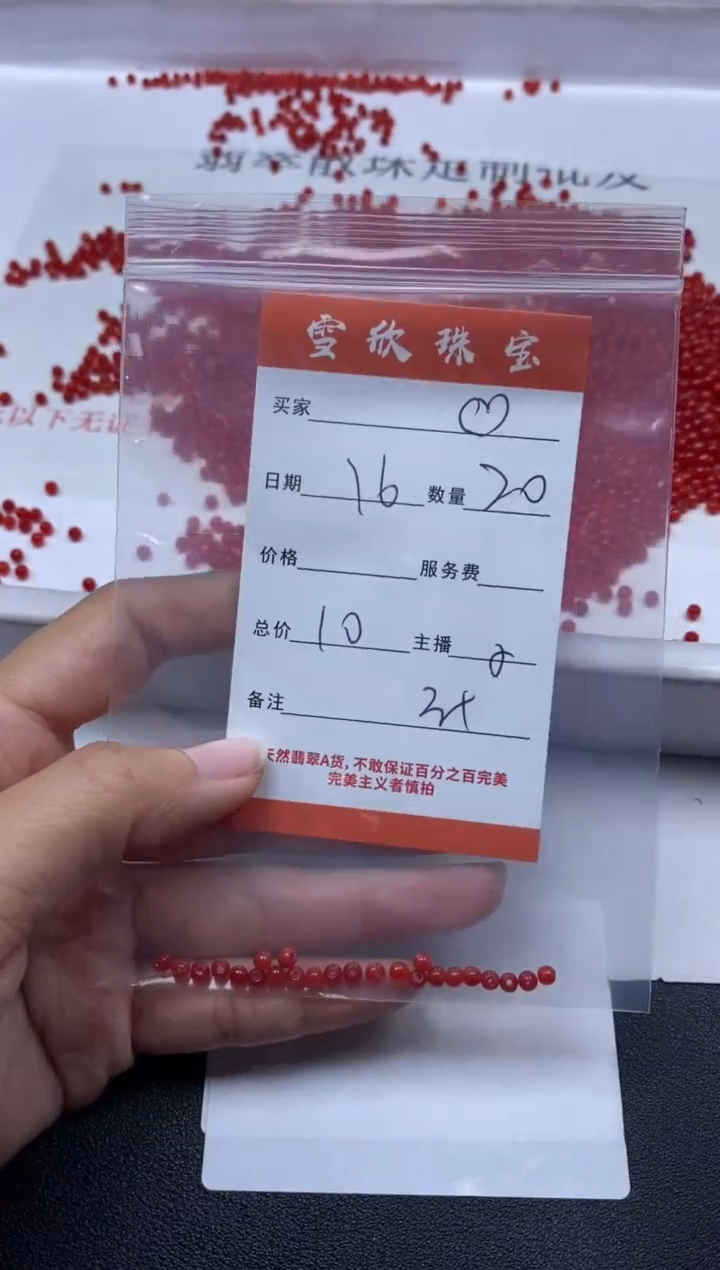 翡翠散珠定制批发
雪欣珠宝
以下无证
买家
日期 16 数量 20
价格 服务费
总价 10 主播
备注
天然翡翠A货,不敢保证百分之百完美
完美主义者慎拍